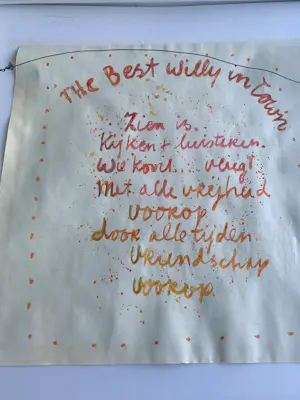 The Best willy in Town
Zien is.
Kijken + luisteren.
Wie komt... veugt
Met alle vrijheid
voorop
door alle tijden
vriendschap
voorop.